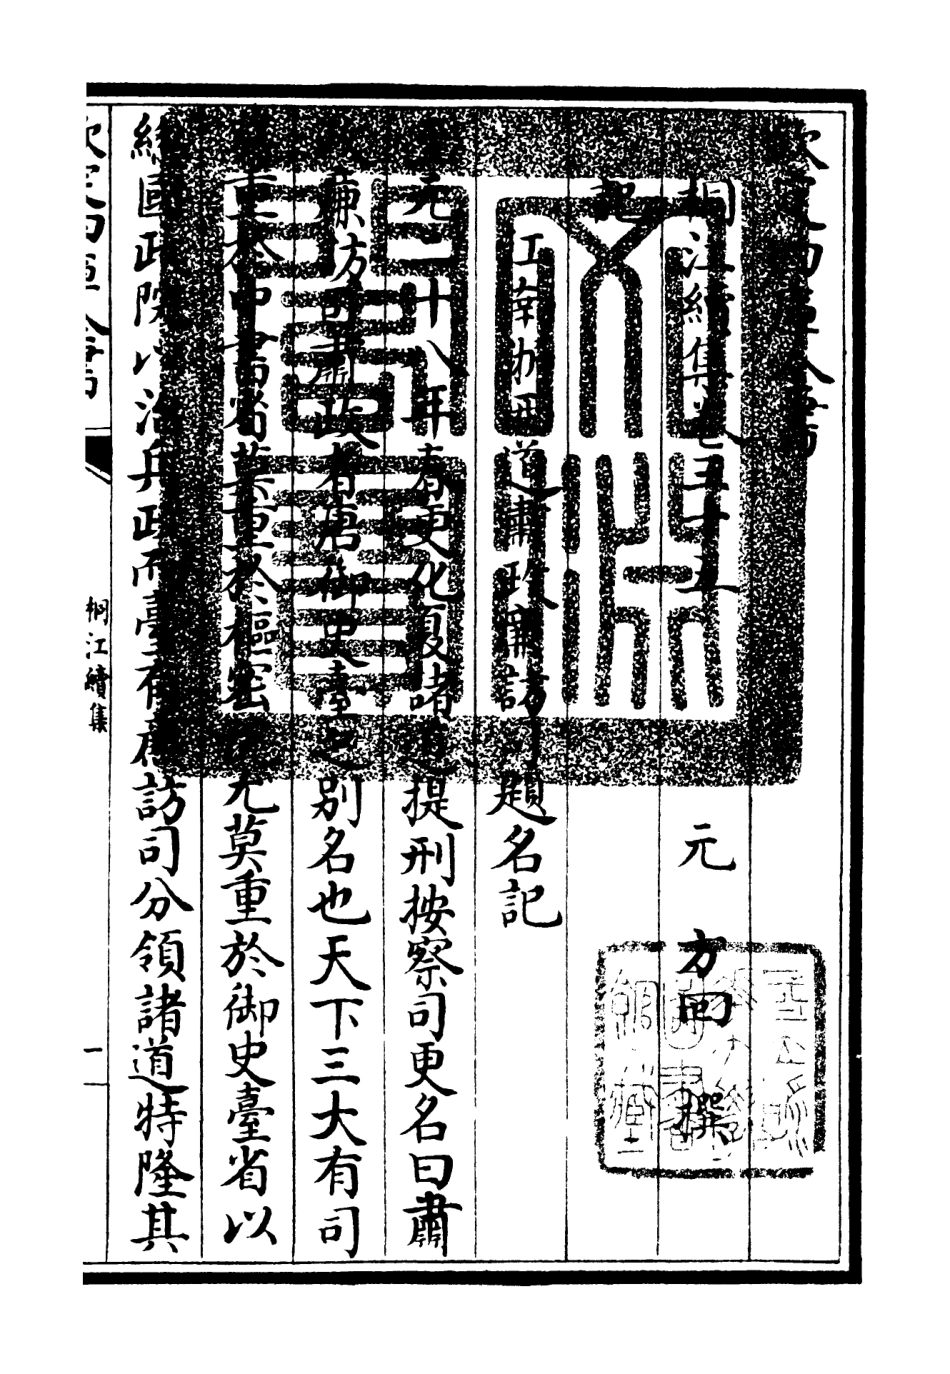 欽定四庫全書
桐江續集卷三十五
元 方回 撰
記
江南浙西道肅政廉訪司題名記
至元二十八年春更化夏諸道提刑按察司更名曰肅
政廉訪司肅政者唐御史臺之別名也天下三大有司
莫重於中書省莫重於樞密院尤莫重於御史臺省以
總國政院以治兵政而臺有廉訪司分領諸道特隆其
欽定四庫全書
桐江續集
一